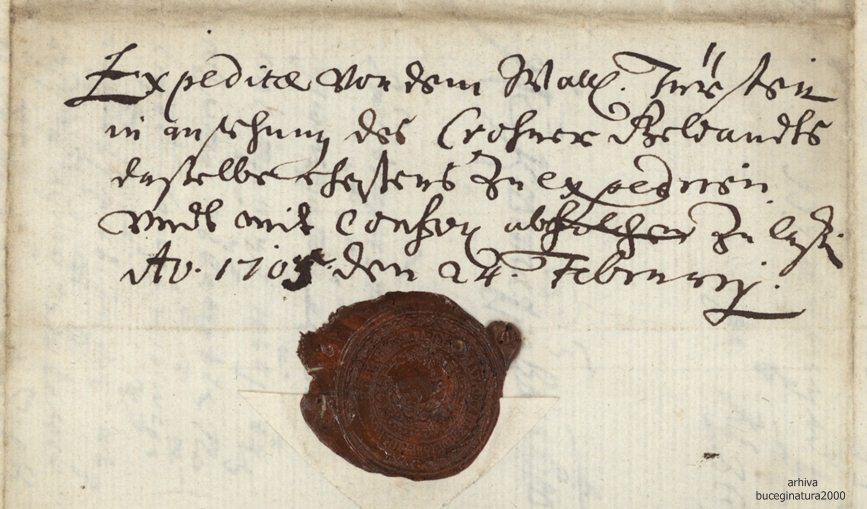 Expeditæ von dem Wall. Fürsten
in ansehung des Crohner Geldandts
dasselbe ehestens zu expedieren
undt mit Confoy abfolgen zu lassen
Ao. 1705. den 24. Februarij.
arhiva
buceginatura2000